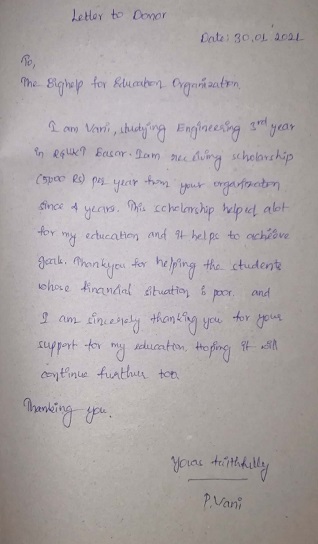 Letter to Donor
Date: 30.01.2021
To,
The Bighelp for Education Organization,
I am Vani, studying Engineering 3rd year
in RGUKT Basar. I am receiving scholarship
(5000 Rs) per year from your organization
since 4 years. This scholarship helped alot
for my education and it helps to achieve
goals. Thankyou for helping the students
whose financial situation is poor. and
I am sincerely thanking you for your
support for my education. Hoping it will
continue further too.
Thanking you.
Yours faithfully
P.Vani